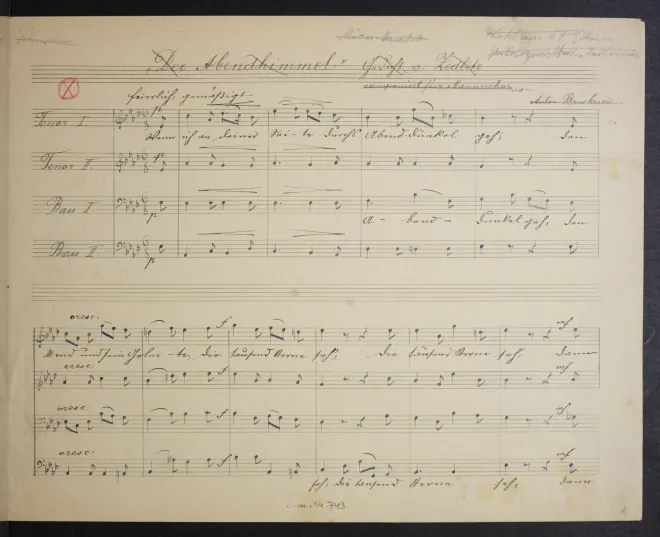 "Der Abendhimmel" Gedicht v. Zedlitz
componiert für Männerchor
Anton Bruckner
feierlich, gemäßigt
Tenor I.
Wenn ich an deiner Sei - te durchs Abenddunkel geh, den
Tenor II.
Bass I.
A - bend - dunkel geh, den
Bass II.
cresc:
Mond und sein Gelei - te, die tausend Sterne seh, die tausend Sterne seh, dann
cresc:
cresc:
cresc:
seh, die tausend Sterne seh, dann
19.743